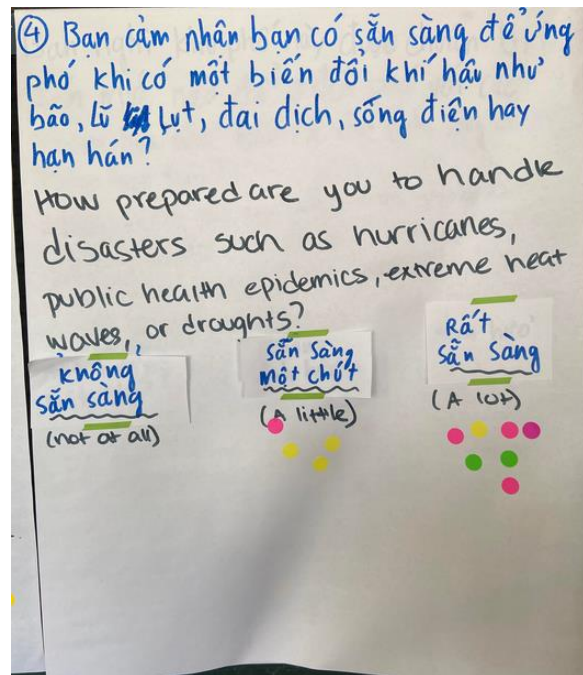 ④ Bạn cảm nhận bạn có sẵn sàng để ứng
phó khi có một biến đổi khí hậu như
bão, lũ lụt, đại dịch, sóng điện hay
hạn hán?
How prepared are you to handle
disasters such as hurricanes,
public health epidemics, extreme heat
waves, or droughts?
không
sẵn sàng
(not at all)
sẵn sàng
một chút
(A little)
Rất
sẵn sàng
(A lot)